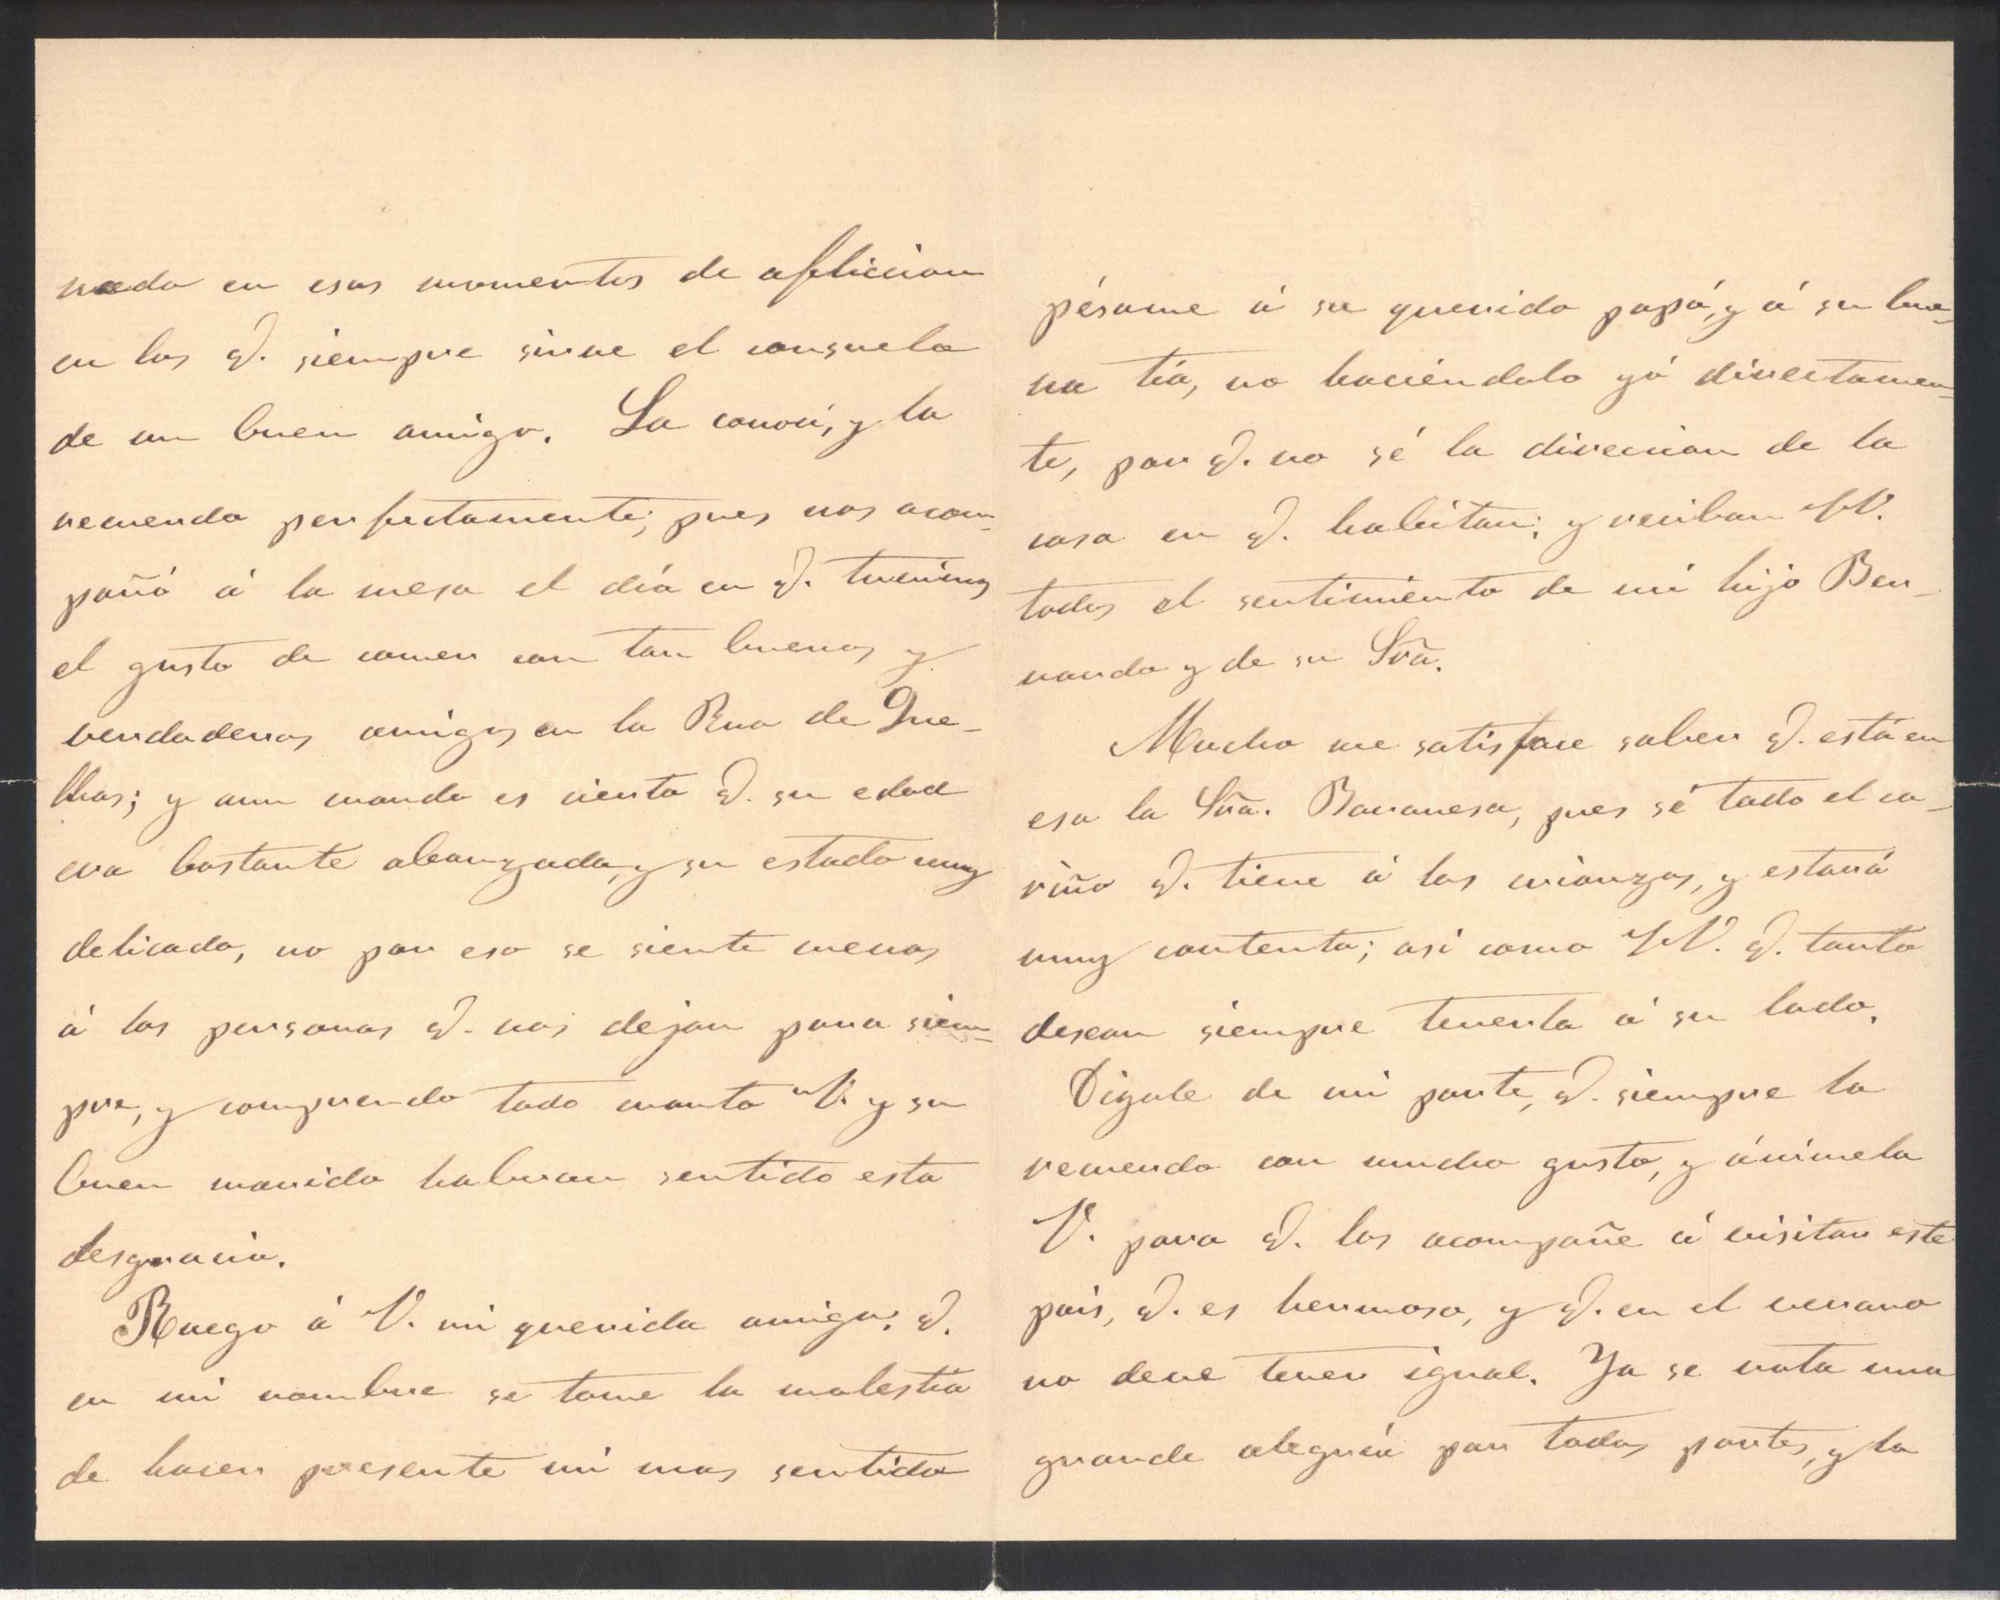 nada en esos momentos de afliccion
en los q. siempre sirve el consuelo
de un buen amigo. La conocí, y la
recuerdo perfectamente; pues nos acom-
pañó á la mesa el día en q. tuvimos
el gusto de comer con tan buenos y
verdaderos amigos en la Rua de Que-
lhas; y aun cuando es cierto q. su edad
era bastante abanzada, y su estado muy
delicado, no por eso se siente menos
á las personas q. nos dejan para siem-
pre, y comprendo todo cuanto V. y su
buen marido habran sentido esta
desgracia.
Ruego á V. mi querida amiga; q.
en mi nombre se tome la molestia
de hacer presente mi mas sentido
pésame á su querido papá, y á su bue-
na tía, no haciéndolo yó directamen-
te, por q. no sé la direccion de la
casa en q. habitan; y reciban VV.
todos el sentimiento de mi hijo Ber-
nardo y de su Sra.
Mucho me satisface saber q. está en
esa la Sra. Baronesa, pues sé todo el ca-
riño q. tiene á las crianzas, y estará
muy contenta; asi como VV. q. tanto
desean siempre tenerla á su lado.
Digale de mi parte, q. siempre la
recuerdo con mucho gusto, y ánimela
V. para q. los acompañe á visitar este
pais, q. es hermoso, y q. en el verano
no deve tener igual. Ya se nota una
grande alegría por todas partes, y la